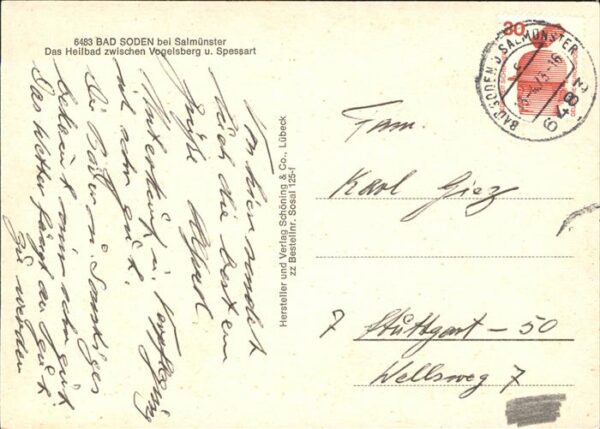 6483 BAD SODEN bei Salmünster
Das Heilbad zwischen Vogelsberg u. Spessart
Von hier sendet
Euch die besten
Grüße Alfred.
Unterkunft u. Verpflegung
ist sehr gut.
Die Bäder u. Sonstiges
bekommt mir sehr gut
Das Wetter fängt an gut
zu werden
Hersteller und Verlag Schöning & Co., Lübeck
zz Bestellnr. Sosal 125-f
30
BAD SODEN B SALMÜNSTER
6483
Fam.
Karl Giez
7 Stuttgart - 50
Wellsweg 7